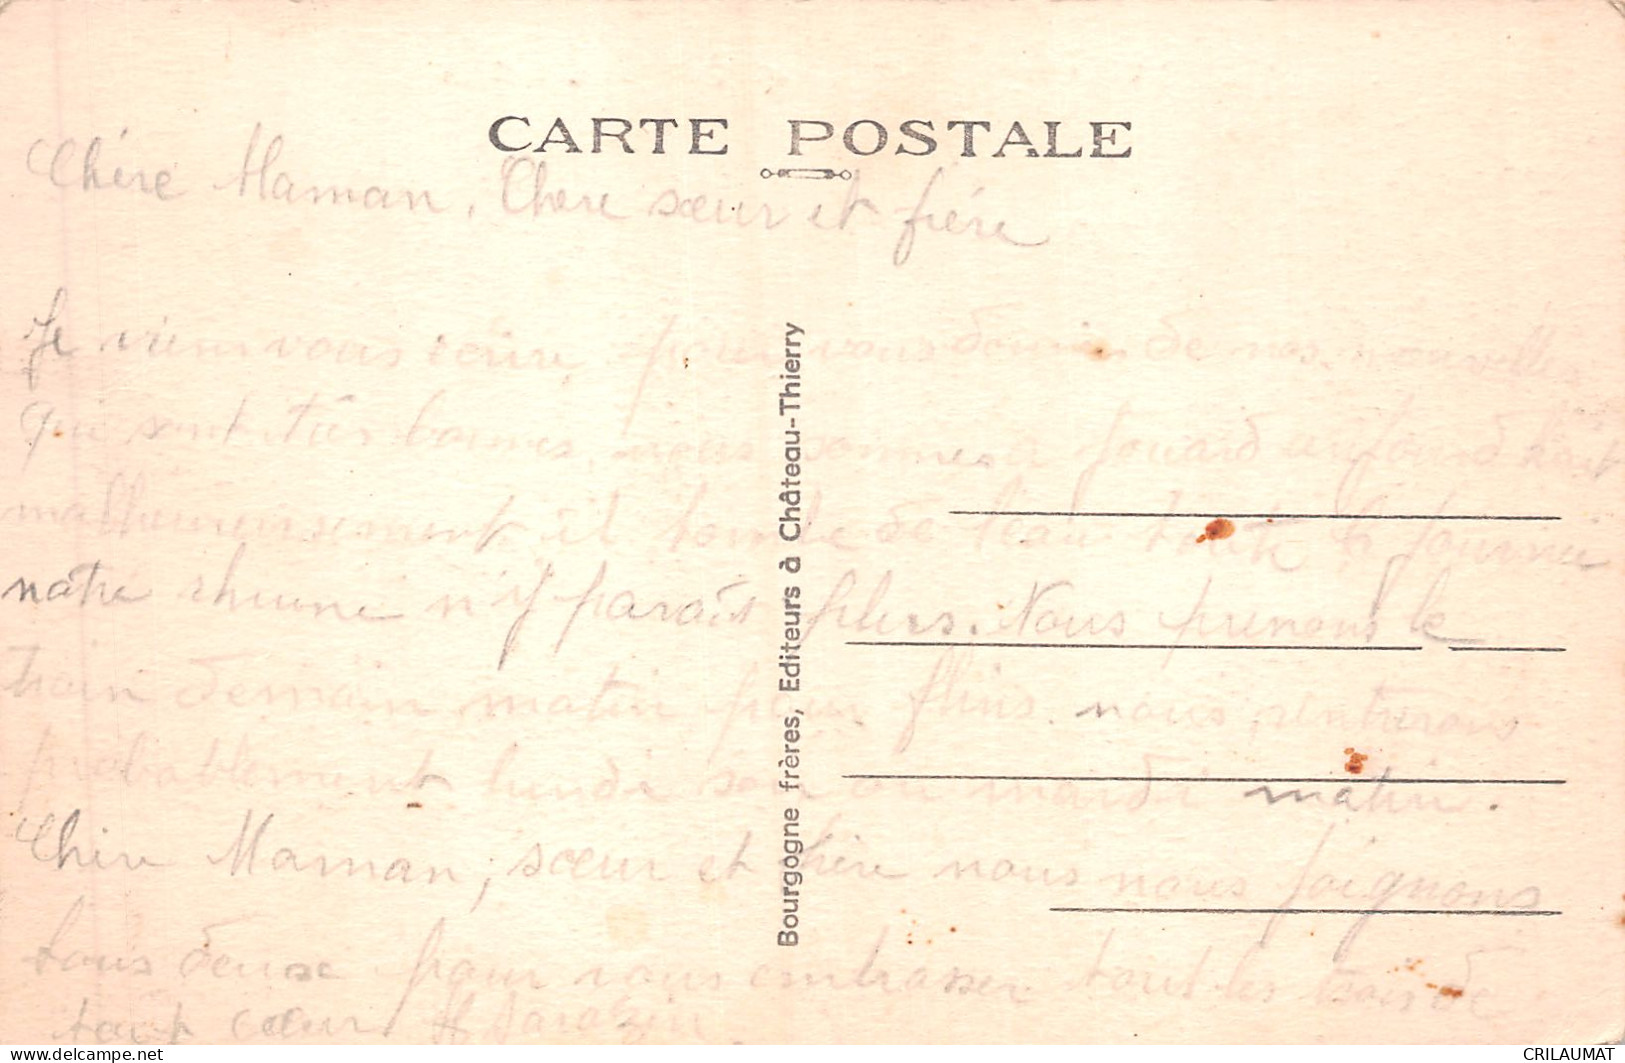 CARTE POSTALE
Chére Maman, Chere sœur et frére
Je viens vous ecrire, pour vous donner de nos nouvelle
qui sont très bonnes, nous sommes a
malheureusement il tombe de l'eau toute la journée
notre rhume n'y parait plus. Nous prenons le
train demain matin pour flins. nous rentrerons
probablement lundi soir ou mardi matin.
Chère Maman, sœur et frère nous nous joignons
tous deux pour vous embrasser tout les trois de
tout cœur
Bourgogne frères, Editeurs à Château-Thierry
CRILAUMAT